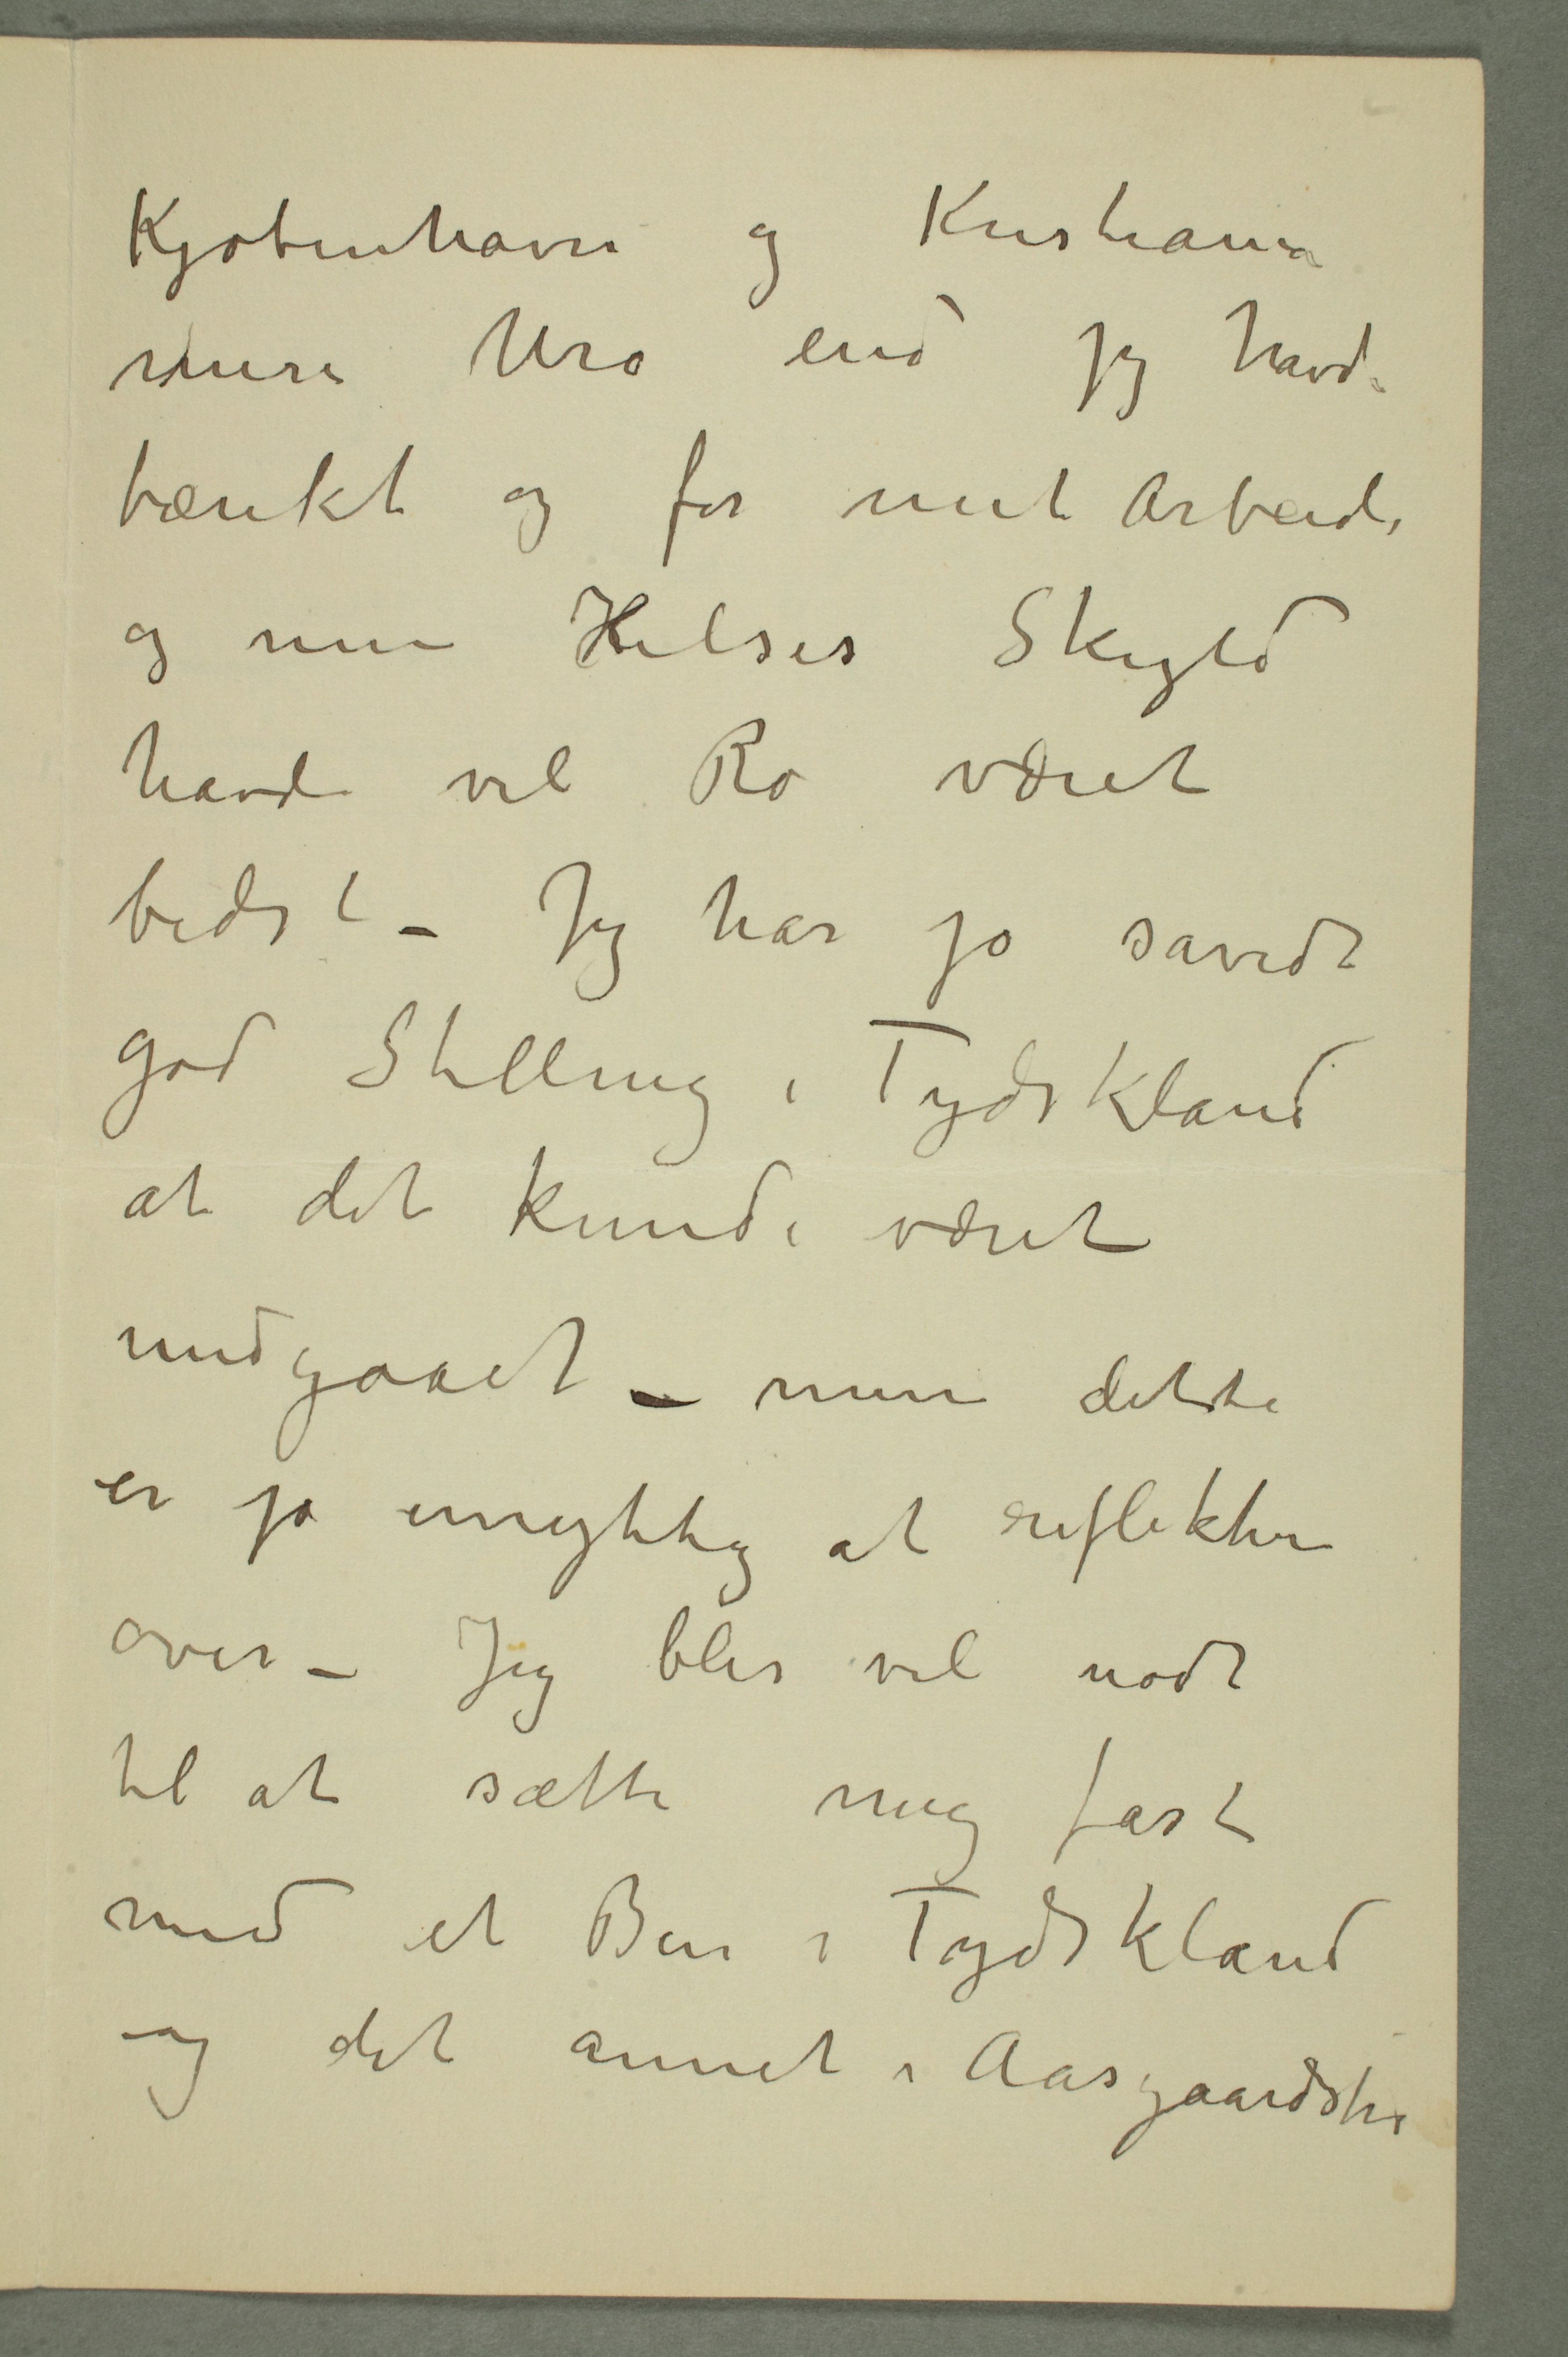 Kjøbenhavn og Kristiania
mere Uro end jeg havde
tænkt og for mit Arbeide
og min Helses Skyld
havde vel Ro været
bedst – Jeg har jo savidt
god Stilling i Tydskland
at det kunde været
undgaaet – men dette
er jo unyttig at reflektere
over – Jeg blir vel nødt
til at sætte mig fast
med et Ben i Tydskland
og det annet i Aasgaardstrand